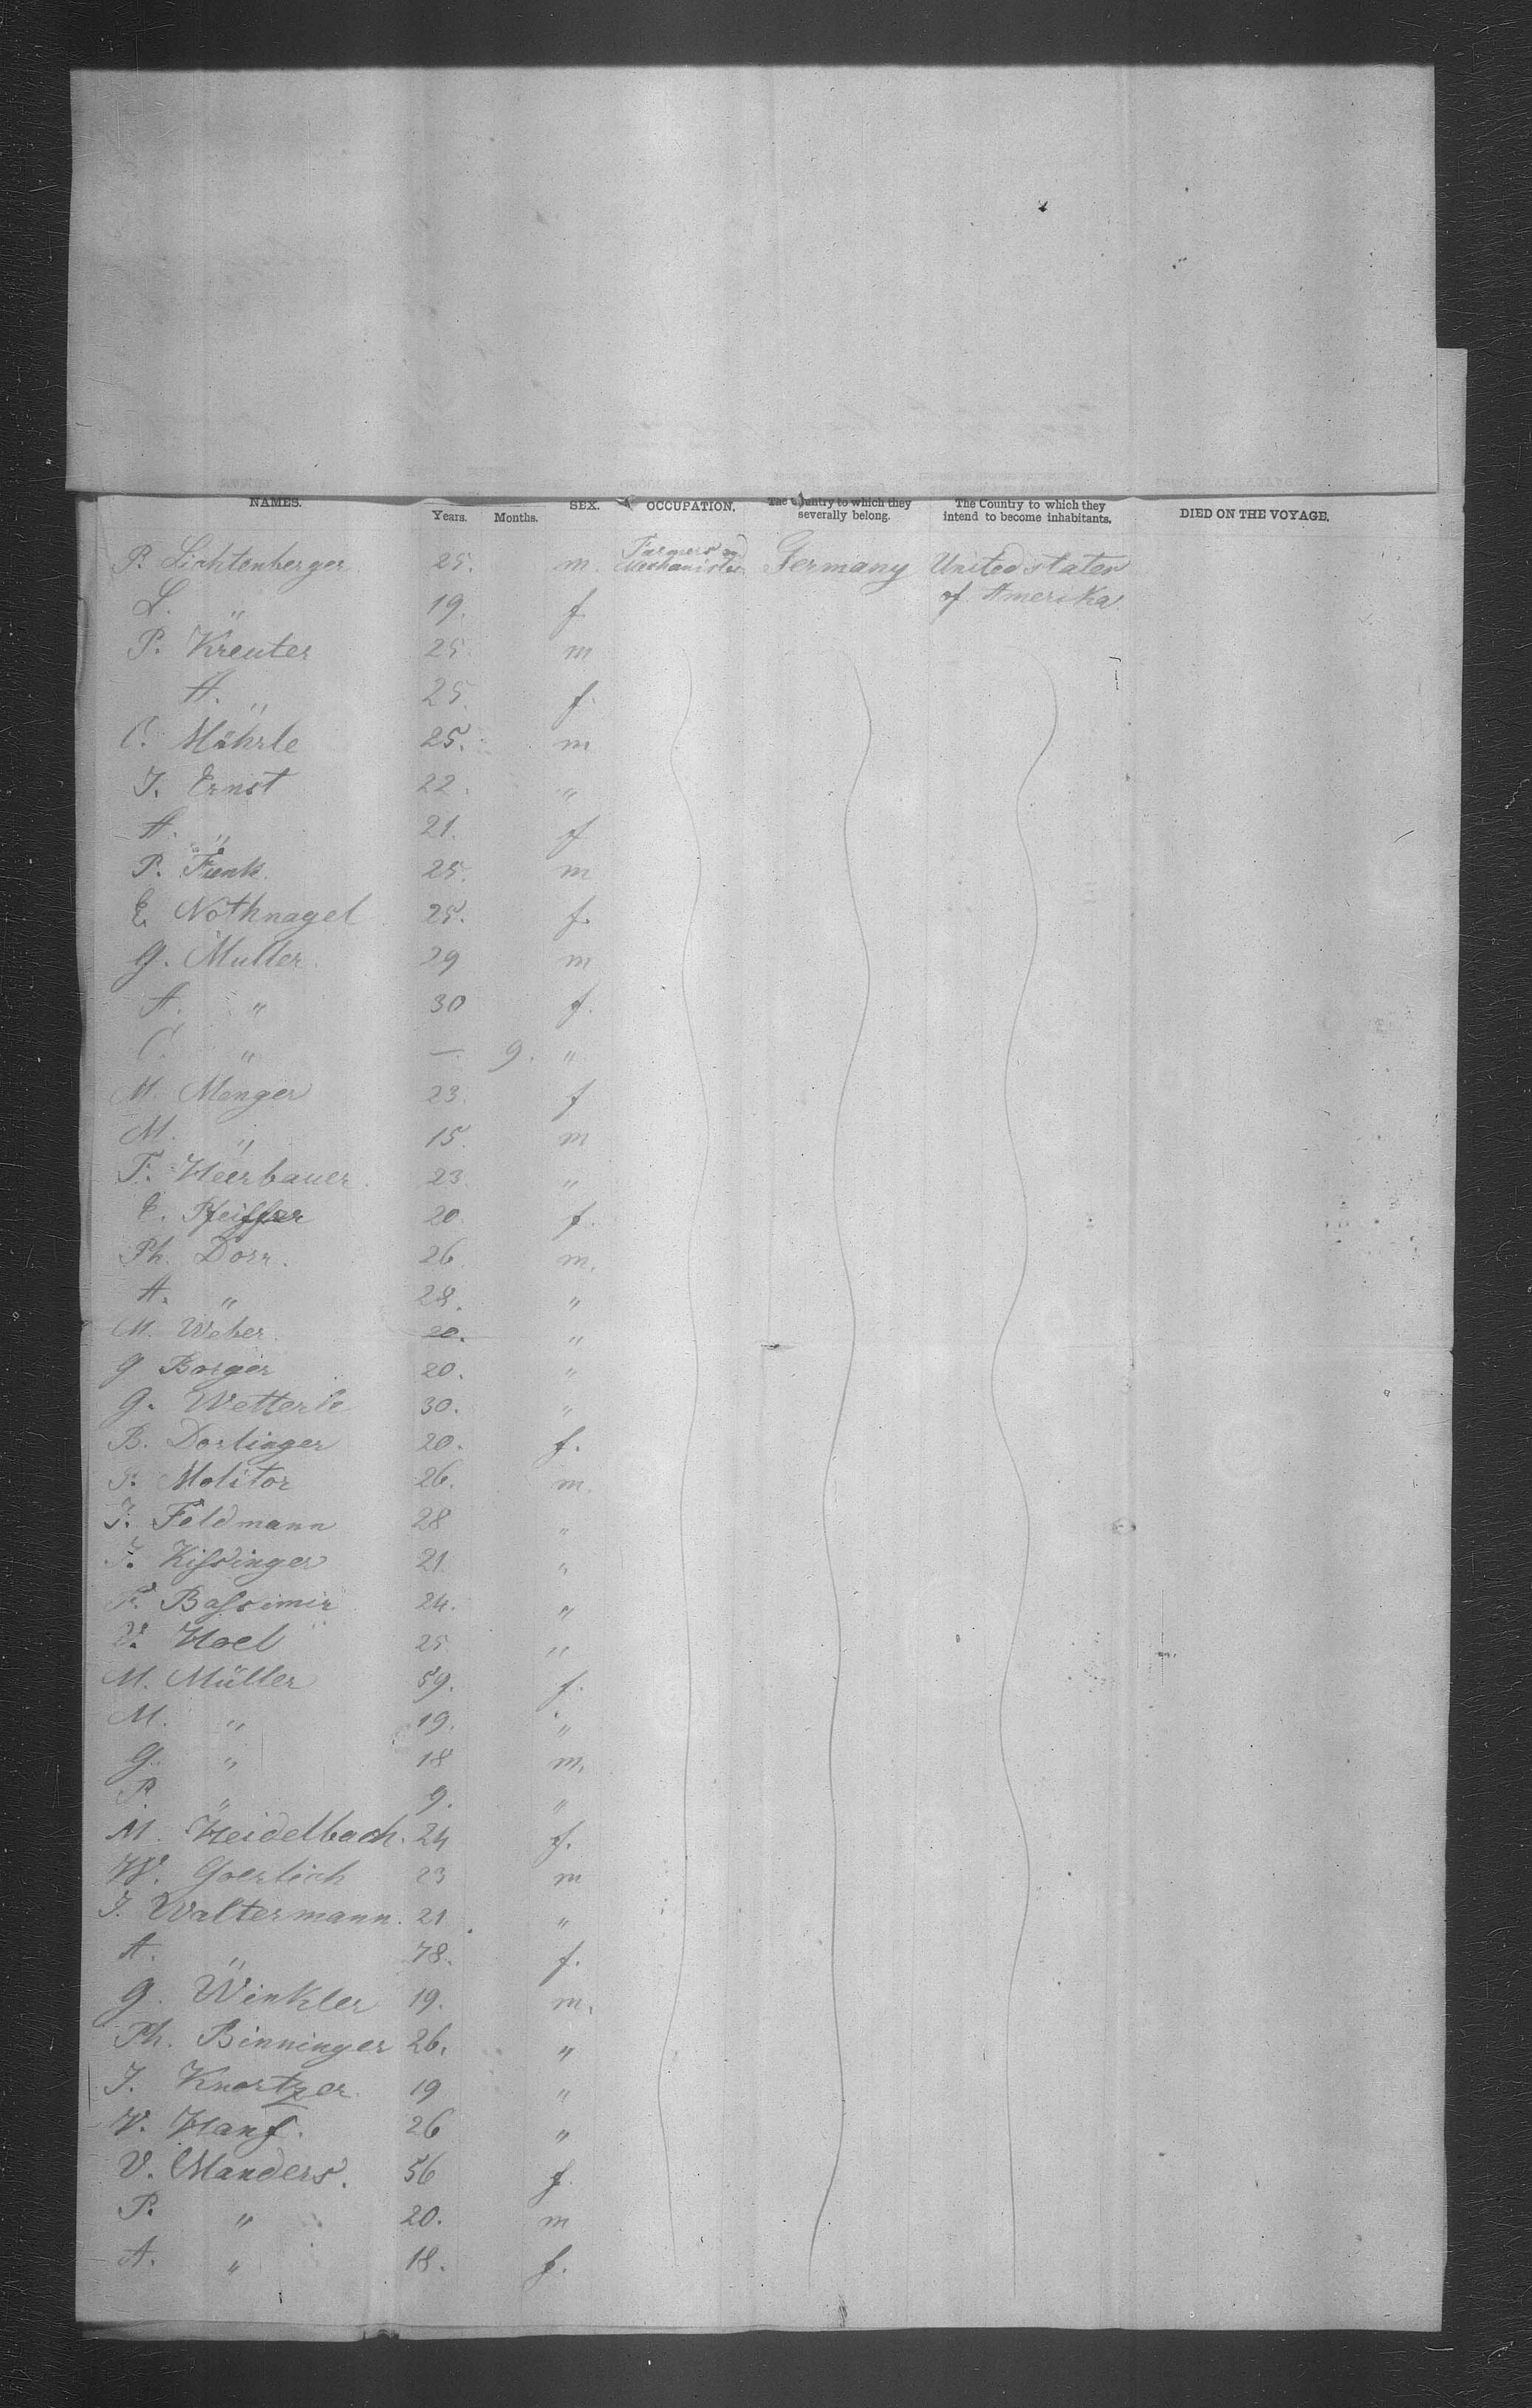 NAMES. Years. Months. SEX. OCCUPATION. The Country to which they severally belong. The Country to which they intend to become inhabitants. DIED ON THE VOYAGE.
P. Lichtenberger 25. m. Farmers and Mechanister Germany United states
L. " 19. f of Amerika
P. Kreuter 25. m
A. " 25. f.
C. Möhrle 25. m
J. Ernst 22. "
A. " 21. f
P. Funk. 25. m
E. Nothnagel 25. f.
G. Muller. 29 m
A. " 30 f.
C. " —. 9. "
M. Menger 23. f
M. " 15. m
F. Heerbauer. 23. "
E. Pfeiffer 20. f.
Ph. Dorr. 26. m.
A. " 28. "
M. Weber. 20. "
G Borger 20. "
G. Wetterle 30. "
B. Dorlinger 20. f.
P. Molitor 26. m.
J. Feldmann 28 "
J. Kissinger 21 "
F. Bassimir 24. "
V. Hoel 25 "
M. Müller 59. f.
M. " 19. "
G. " 18 m.
P. " 9. "
M. Heidelbach. 24 f.
W. Goerlich 23 m
J. Waltermann. 21 "
A. " 78. f.
G. Winkler 19. m.
Ph. Binninger 26. "
J. Knortzer. 19 "
V. Hanf. 26 "
V. Manders. 56 f.
P. " 20. m
A. " 18. f.